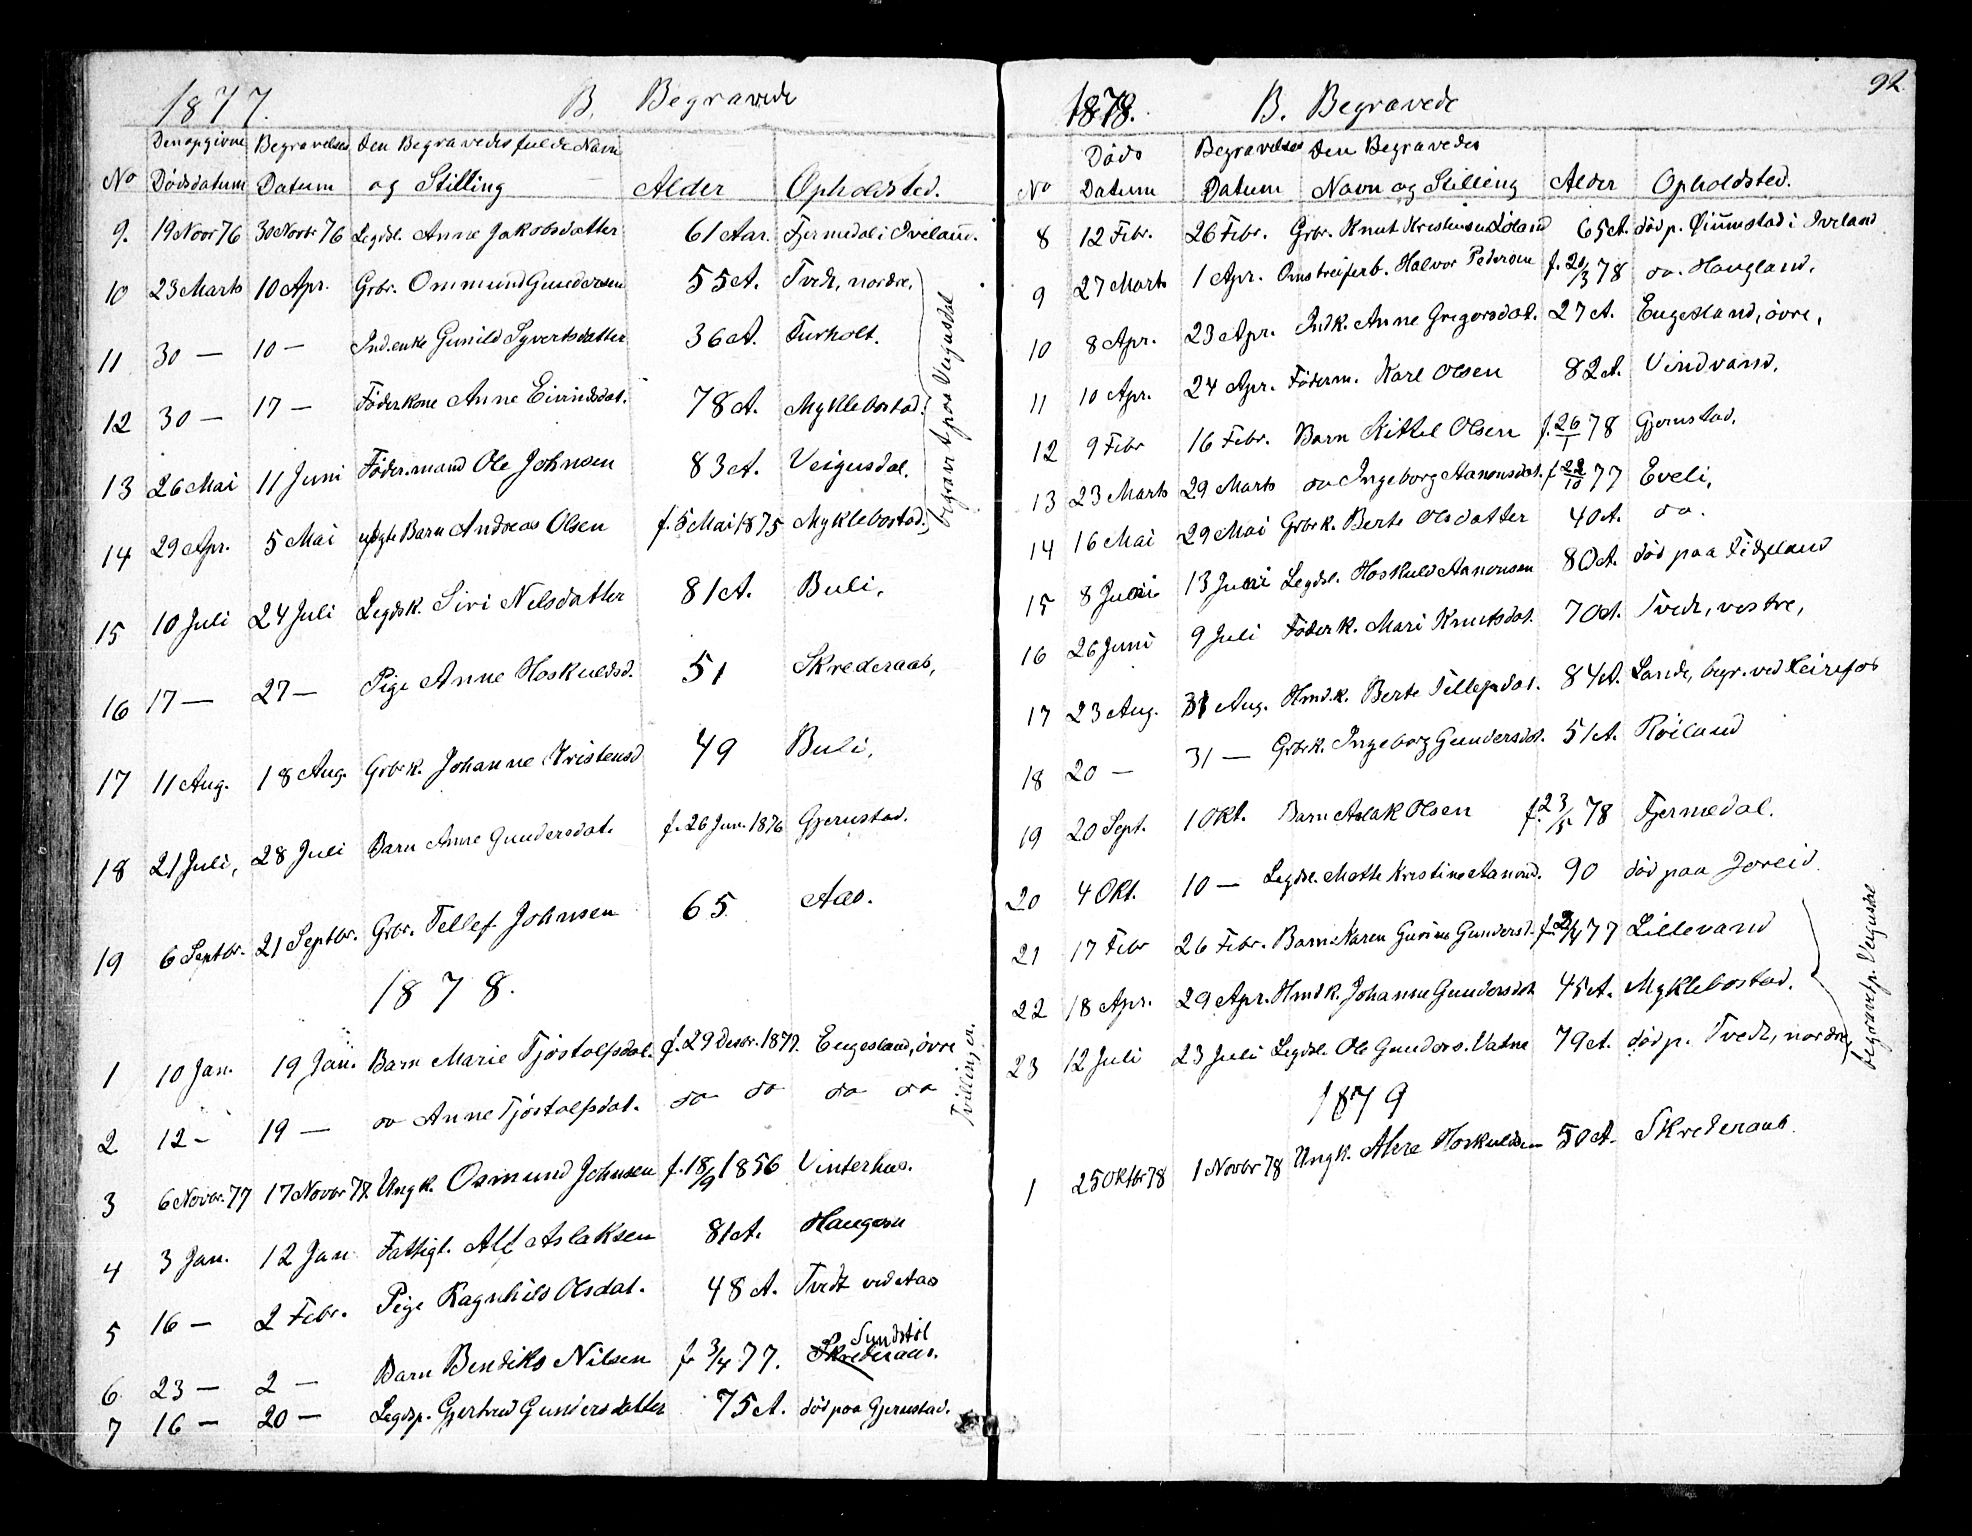 1877. B. Begravede
Den opgivne Begravelses Den Begravedes fulde Navn
No Dødsdatum Datum og Stilling Alder Opholdsted.
9. 19 Novr 76 30 Novbr 76 Legdsl. Anne Jakobsdatter 61 Aar. Fjermedal i Iveland.
10 23 Marts 10 Apr. Grbr. Ommund Gundersen 55 A. Tvedt, nordre,
11 30 — 10 — Ind.enke Gunild Syvertsdatter 36 A. Furholt.
12 30 — 17 — Föderkone Anne Eivindsdat. 78 A. Myklebostad.
13 26 Mai 11 Juni Föder.mand Ole Johnsen 83 A. Veigusdal.
14 29 Apr. 5 Mai ægte Barn Andreas Olsen f. 5 Mai 1875 Myklebostad.
begravet paa Veigusdal
15 10 Juli 24 Juli Legdsk. Siri Nilsdatter 81 A. Buli,
16 17 — 27 — Pige Anne Hoskuldsd. 51 Skrederaas,
17 11 Aug. 18 Aug. Grbrk. Johanne Kristensd 49 Buli,
18 21 Juli, 28 Juli Barn Anne Gundersdat. f. 26 Jun. 1876 Gjerustad.
19 6 Septbr. 21 Septbr. Grbr. Tellef Johnsen 65 Aas.
1878.
1 10 Jan. 19 Jan. Barn Marie Tjöstolfsdat. f. 29 Decbr. 1877. Eugesland, övre
2 12 — 19 — do Anne Tjöstolfsdat. do do do do
Tvillinger.
3 6 Novbr. 77 17 Novbr 77. Ungk. Osmund Johnsen f. 18/9 1856 Vinterhus.
4 3 Jan. 12 Jan Fattigl. Alf Aslaksen 81 A. Haugen
5 16 — 2 Febr. Pige Ragnhild Olsdat. 48 A. Tvedt ved Aas
Sundstöl
6 23 — 2 — Barn Bendiks Nilsen f. 3/4 77. Skrederaas.
7 16 — 20 — Legdsp. Gjertrud Gundersdatter 75 A. död paa Gjerustad.
92.
1878. B. Begravede
Døds Begravelses Den Begravedes
No Datum Datum Navn og Stilling Alder Opholdsted.
8 12 Febr. 26 Febr. Grbr. Knut Kristensen 65 A. död p. i Iveland
9 27 Marts 1 Apr. Omstreiferb. Halvor Pedersen f. 20/3 78 do. Haugland,
10 8 Apr. 23 Apr. Indk. Anne Gregorsdat. 27 A. Eugesland, övre,
11 10 Apr. 24 Apr. Föderm. Karl Olsen 82 A. Vindvand,
12 9 Febr 16 Febr. Barn Kittel Olsen f. 26/1 78 Gjerustad,
13 23 Marts 29 Marts do Ingeborg Aanonsdat. f 22/10 77 Eveli,
14 16 Mai 29 Mai Grbrk. Berte Olsdatter 40 A. do.
15 8 Juni 13 Juni Legdsl. Hoskuld Aanonsen 80 A. död paa Tidzeland
16 26 Juni 9 Juli Föderk. Mari Knutsdat. 70 A. Tvedt, vestre,
17 23 Aug. 31 Aug. Hmdk. Berte Tellefsdat. 84 A. Lande, begr. ved Heirefos
18 20 — 31 — Grbrk. Ingeborg Gundersdat. 51 A. Röiland
19 20 Sept. 1 Okt. Barn Aslak Olsen f. 23/5 78 Fjermedal.
20 4 Okt. 10 — Legdsl. Mette Kristine Aanond. 90 död paa Joreid
21 17 Febr 26 Febr. Barn Karen Gurine Gundersd. 77 Lillevand
22 18 Apr. 29 Apr. Hmdk. Johanne Gundersdat. 45 A. Myklebostad.
23 12 Juli 23 Juli Legdsl. Ole Gunders. Vatne 79 A. död p. Tvedt, nordre,
begravet p. Veigusdal
1879
1 25 Oktbr 78 1 Novbr 78 Ungk. Hoskuldsen 50 A. Skrederaas.